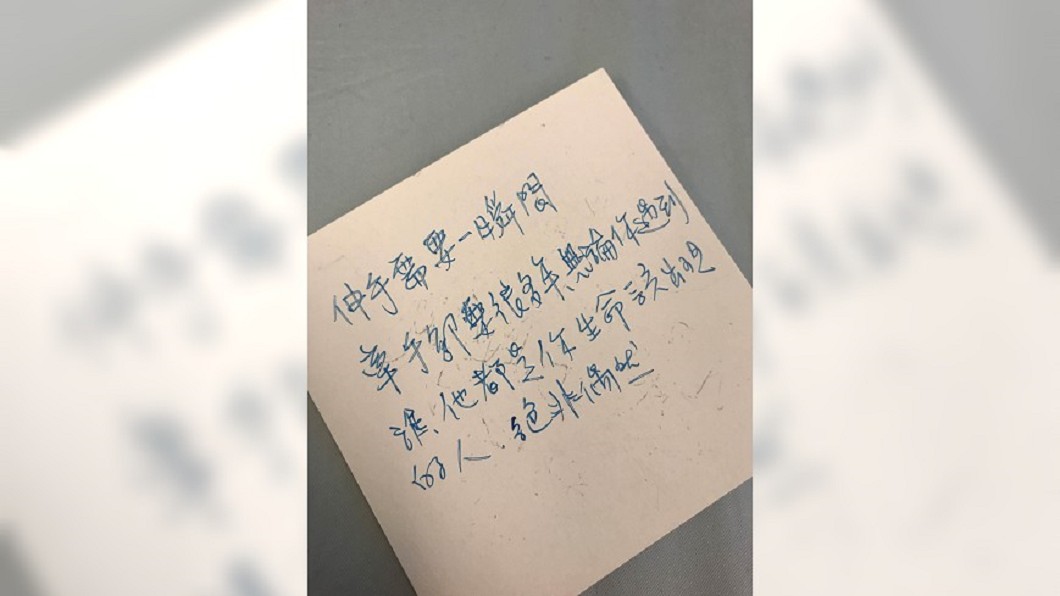 伸手需要一瞬間
牽手卻要很多年,無論你遇到
誰、他都是你生命該出現
的人、絕非偶然